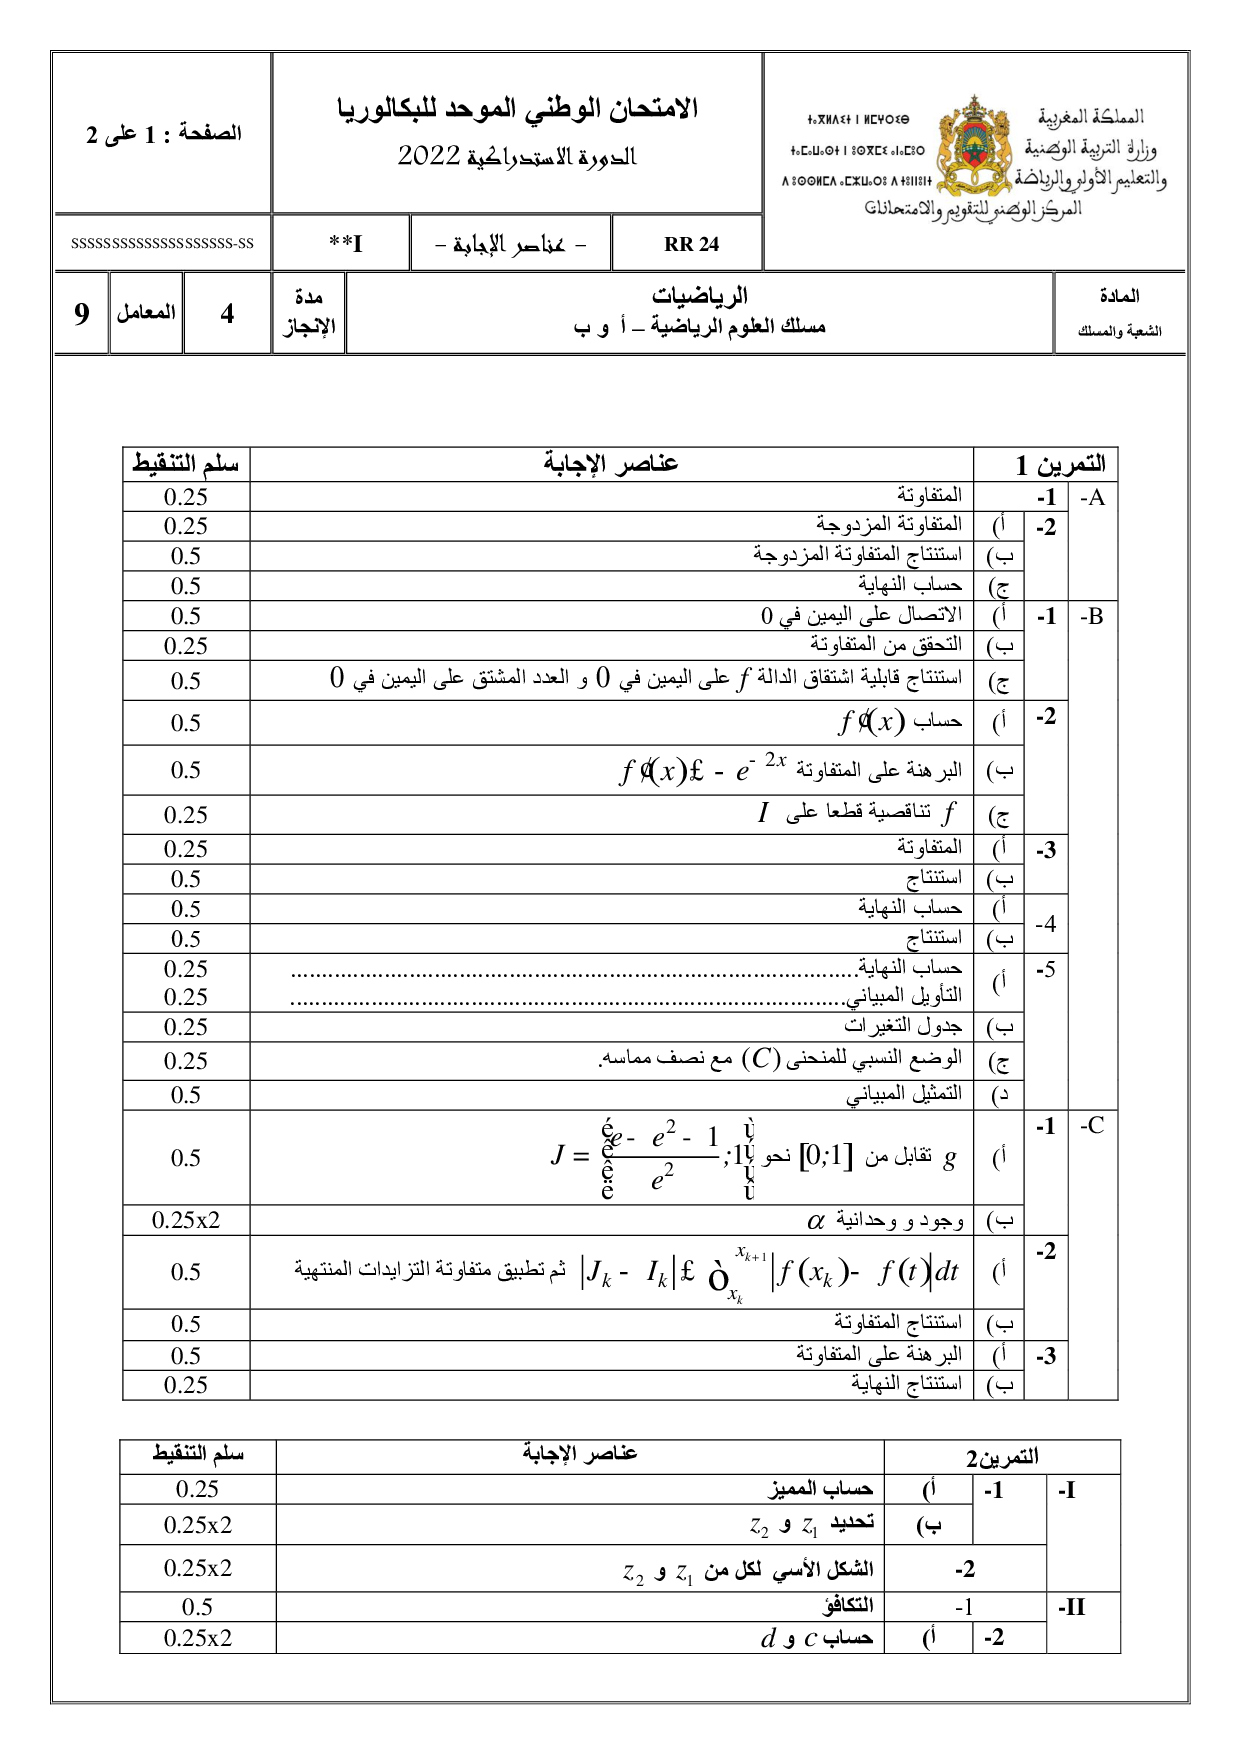 المملكة المغربية
وزارة التربية الوطنية
والتعليم الأولي والرياضة
المركز الوطني للتقويم والامتحانات
ⵜⴰⴳⵍⴷⵉⵜ ⵏ ⵍⵎⵖⵔⵉⴱ
ⵜⴰⵎⴰⵡⴰⵙⵜ ⵏ ⵓⵙⴳⵎⵉ ⴰⵏⴰⵎⵓⵔ
ⴷ ⵓⵙⵙⵍⵎⴷ ⴰⵎⵣⵡⴰⵔⵓ ⴷ ⵜⵓⵏⵏⵓⵏⵜ
الامتحان الوطني الموحد للبكالوريا
الدورة الاستدراكية 2022
الصفحة : 1 على 2
RR 24
- عناصر الإجابة -
**I
SSSSSSSSSSSSSSSSSSSS-SS
المادة
الشعبة والمسلك
الرياضيات
مسلك العلوم الرياضية – أ و ب
مدة الإنجاز
4
المعامل
9
التمرين 1 عناصر الإجابة سلم التنقيط
A- 1- المتفاوتة 0.25
2- أ) المتفاوتة المزدوجة 0.25
ب) استنتاج المتفاوتة المزدوجة 0.5
ج) حساب النهاية 0.5
B- 1- أ) الاتصال على اليمين في 0 0.5
ب) التحقق من المتفاوتة 0.25
ج) استنتاج قابلية اشتقاق الدالة f على اليمين في 0 و العدد المشتق على اليمين في 0 0.5
2- أ) حساب f ¢(x) 0.5
ب) البرهنة على المتفاوتة f ¢(x)£ - e- 2x 0.5
ج) f تناقصية قطعا على I 0.25
3- أ) المتفاوتة 0.25
ب) استنتاج 0.5
4- أ) حساب النهاية 0.5
ب) استنتاج 0.5
5- أ) حساب النهاية........................................................................................... 0.25
التأويل المبياني......................................................................................... 0.25
ب) جدول التغيرات 0.25
ج) الوضع النسبي للمنحنى (C) مع نصف مماسه. 0.25
د) التمثيل المبياني 0.5
C- 1- أ) g تقابل من [0;1] نحو J = é ê ê ë (e - e2 - 1)/e2 ;1 ù ú ú û 0.5
ب) وجود و وحدانية α 0.25x2
2- أ) |Jk - Ik| £ ò xk xk+1 |f (xk)- f (t)|dt ثم تطبيق متفاوتة التزايدات المنتهية 0.5
ب) استنتاج المتفاوتة 0.5
3- أ) البرهنة على المتفاوتة 0.5
ب) استنتاج النهاية 0.25
التمرين2 عناصر الإجابة سلم التنقيط
I- 1- أ) حساب المميز 0.25
ب) تحديد z1 و z2 0.25x2
2- الشكل الأسي لكل من z1 و z2 0.25x2
II- 1- التكافؤ 0.5
2- أ) حساب c و d 0.25x2